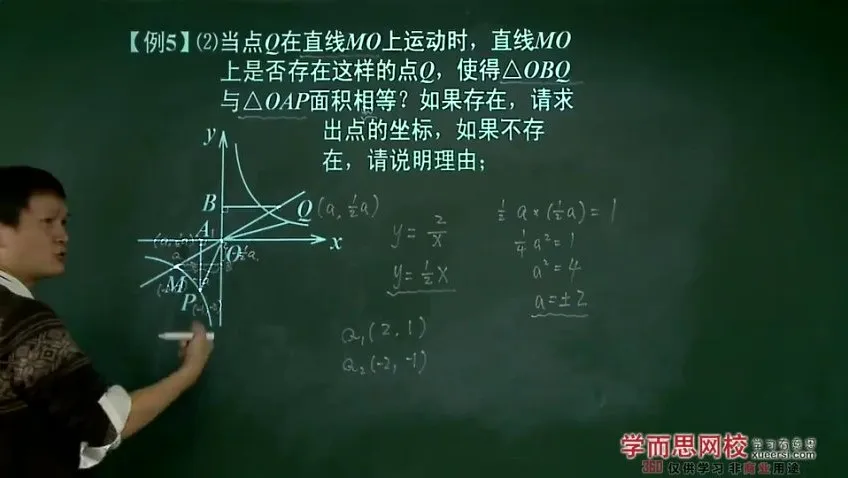 【例5】(2)当点Q在直线MO上运动时，直线MO
上是否存在这样的点Q，使得△OBQ
与△OAP面积相等？如果存在，请求
出点的坐标，如果不存
在，请说明理由；
y
B
Q (a, ½a)
A
O
x
M
P
y = 2/x
y = ½x
Q₁(2, 1)
Q₂(-2, -1)
½ a×(½a) = 1
¼a² = 1
a² = 4
a = ±2
学而思网校
xueersi.com
360 仅供学习 非商业用途